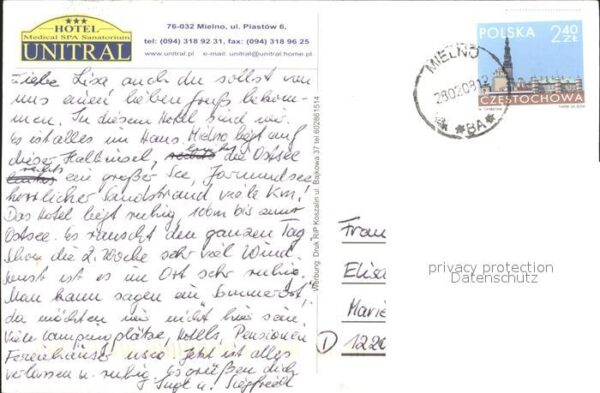 HOTEL
Medical SPA Sanatorium
UNITRAL
76-032 Mielno, ul. Piastów 6,
tel: (094) 318 92 31, fax: (094) 318 96 25
www.unitral.pl e-mail: unitral@unitral.home.pl
Liebe Lisa auch du sollst von
uns einen lieben Gruß bekom-
men. In diesem Hotel sind wir.
Es ist alles im Haus, Mielno liegt auf
dieser Halbinsel, rechts links die Ostsee
links rechts ein großer See, Jamundsee
herrlicher Sandstrand viele Km!
Das Hotel liegt ruhig, 100m bis zur
Ostsee. Es rauscht den ganzen Tag
schon die 2. Woche sehr viel Wind
sonst ist es im Ort sehr ruhig.
Man kann sagen ein Sommerort,
da möchten wir nicht hier sein.
Viele Campingplätze, Hotels, Pensionen
Ferienhäuser usw. Jetzt ist alles
verlassen u. ruhig. Es grüßen dich
Inge u. Siegfried
Werbung: Druk RIP Koszalin ul. Bajkowa 37 tel.602861514
POLSKA 2,40 ZŁ
CZĘSTOCHOWA
MIELNO
28020812
*BA*
Frau
Elisa
Marie
D 1220
privacy protection
Datenschutz